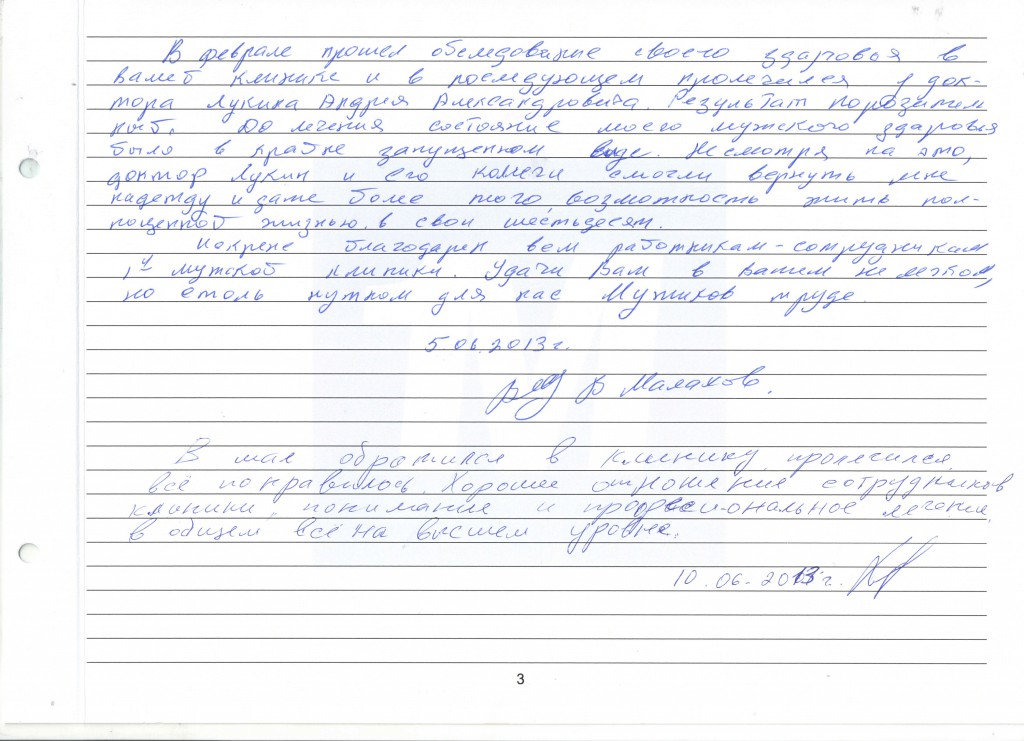 В феврале прошел обследование своего здаровья в
вашей клинике и в последующем пролечился у док-
тора Лукина Андрея Александровича. Результат поразител
ный. До лечения состояние моего мужского здаровья
было в крайне запущенном виде. Несмотря на это,
доктор Лукин и его колеги смогли вернуть мне
надежду и даже более того возможность жить пол-
ноценной жизнью в свои шестьдесят.
Искрене благодарен вем работникам-сотрудникам
1й мужской клиники. Удачи Вам в вашем нелегком,
но столь нужном для нас Мужиков труде.
5 06.2013г.
В Малахов.
В мае обратился в клинику, пролечился
всё понравилось. Хорошее отношение сотрудников
клиники, понимание и профессиональное лечение,
в общем всё на высшем уровне.
10.06-2013г.
3